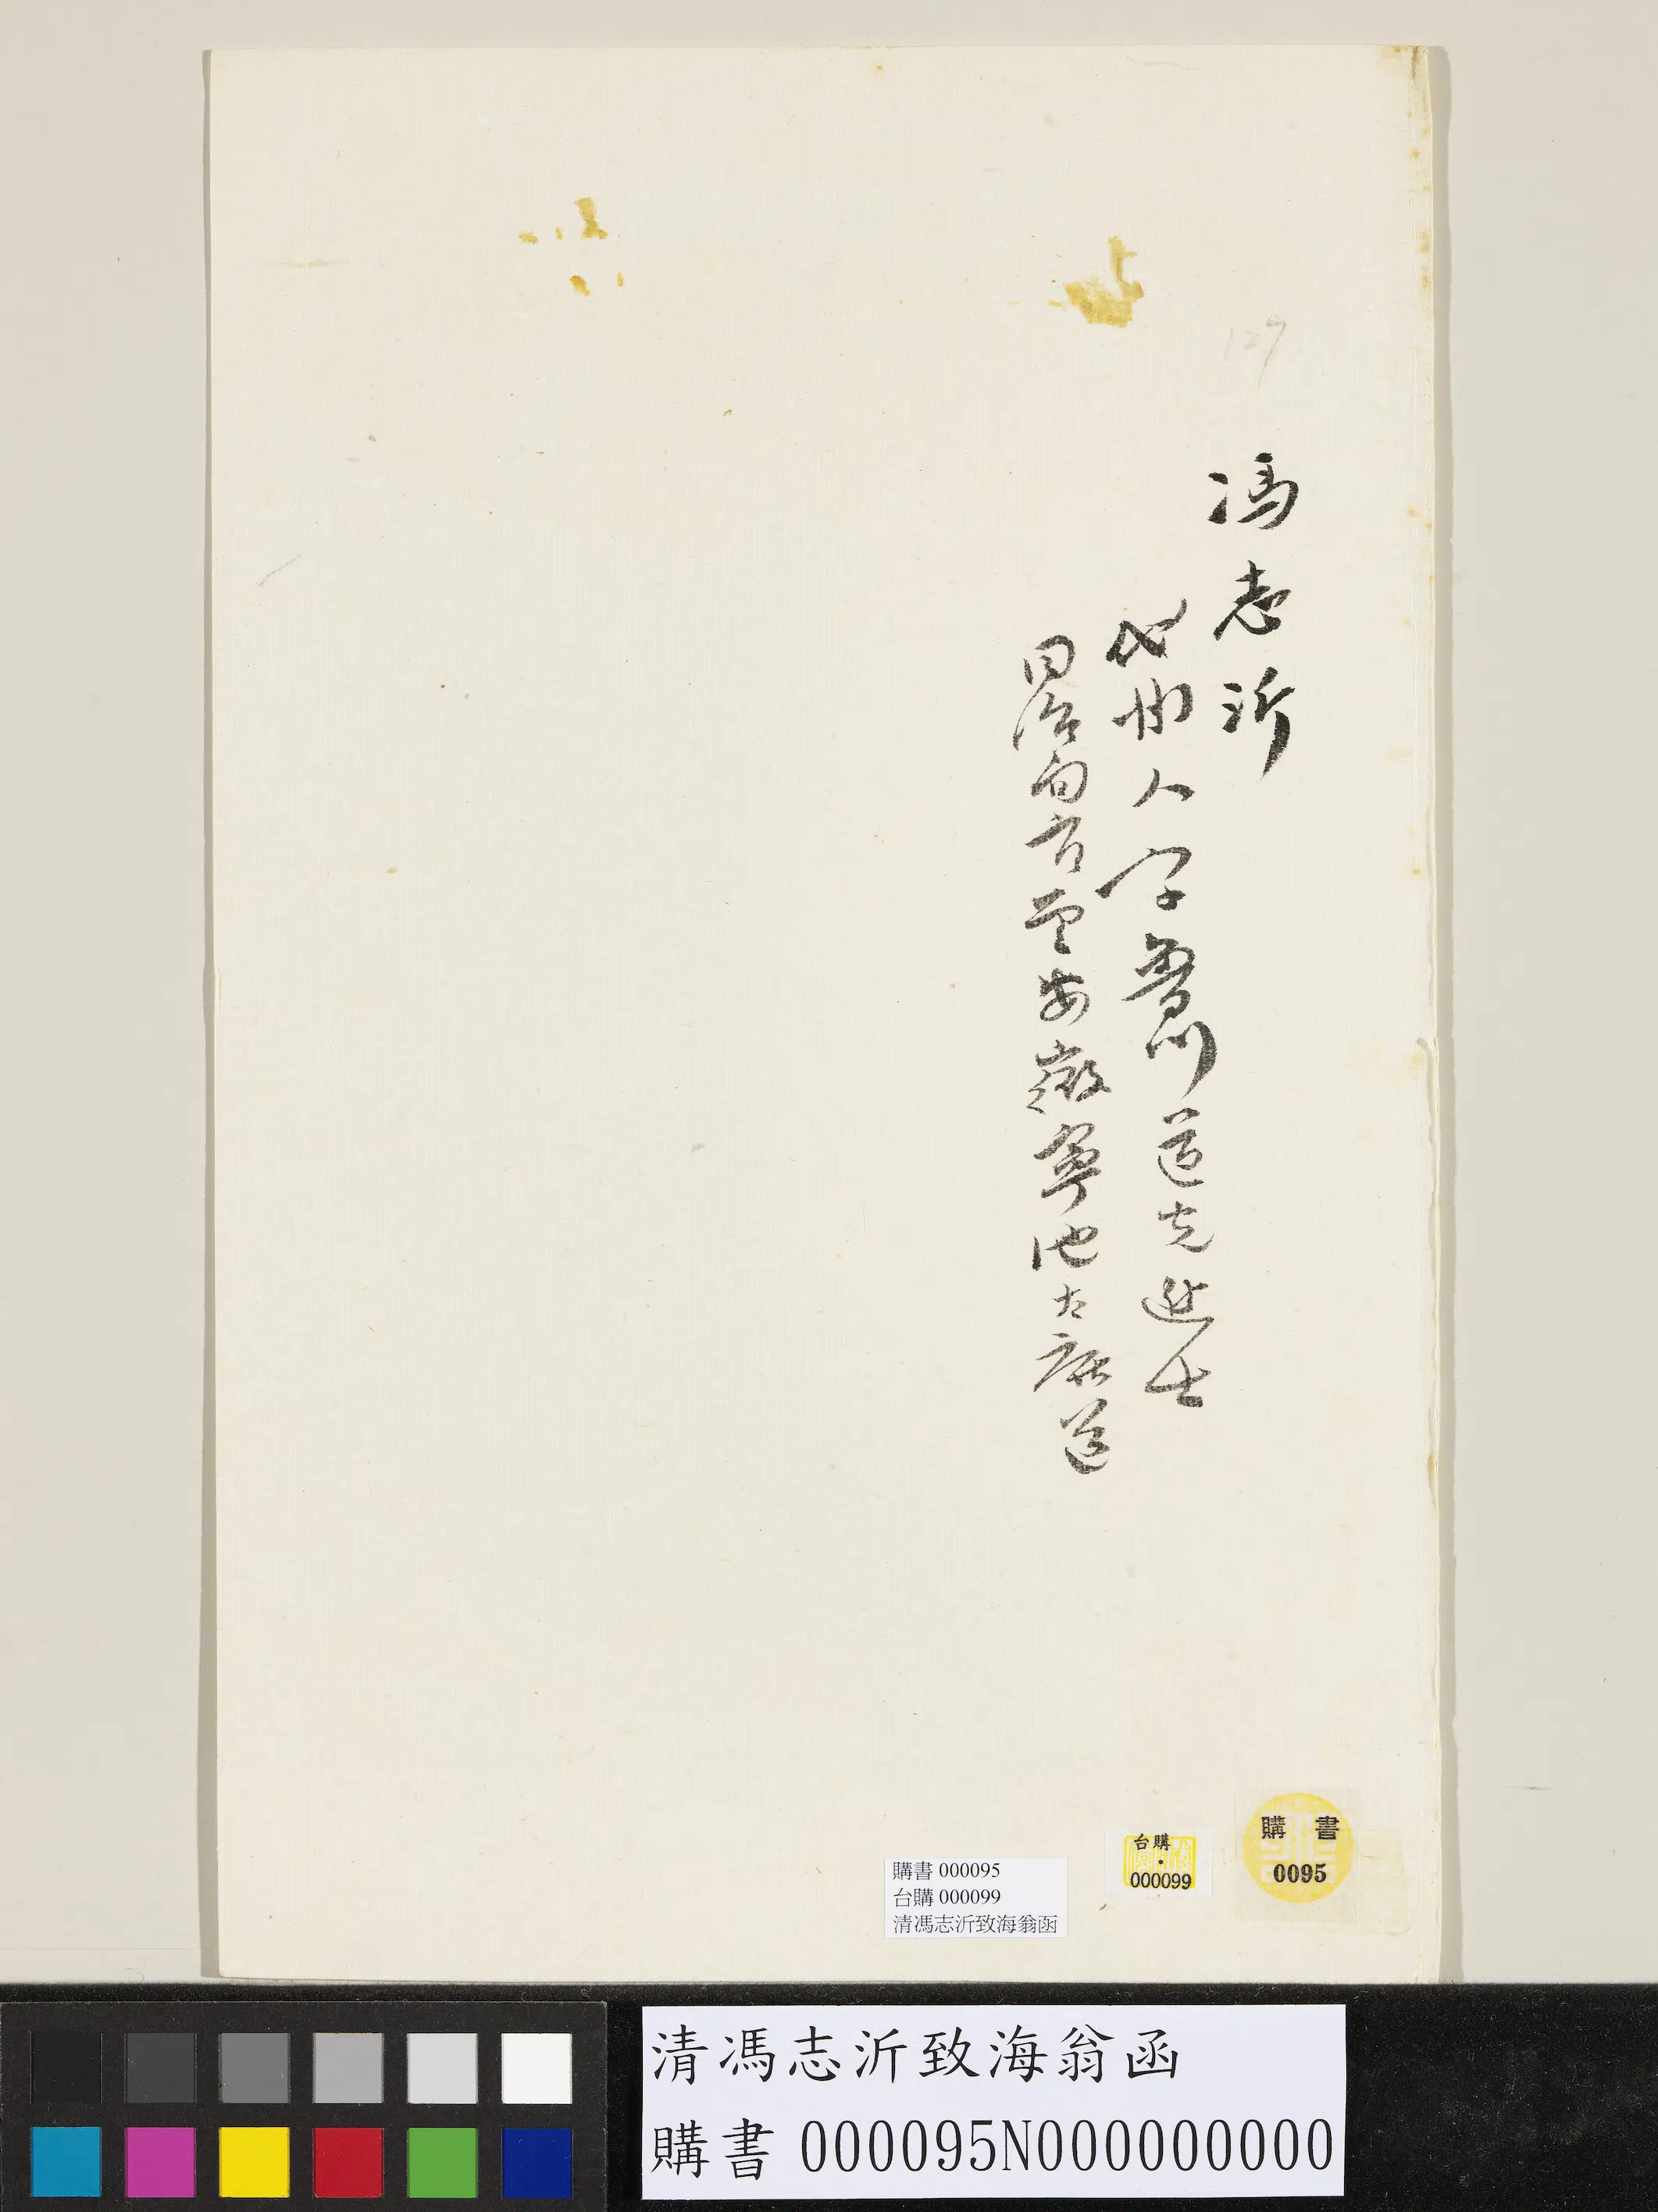 127
馮志沂
代州人字魯川道光進士
同治間官至安徽寧池太廬道
購書
0095
台購
000099
購書 000095
台購 000099
清馮志沂致海翁函
清馮志沂致海翁函
購書 000095N000000000